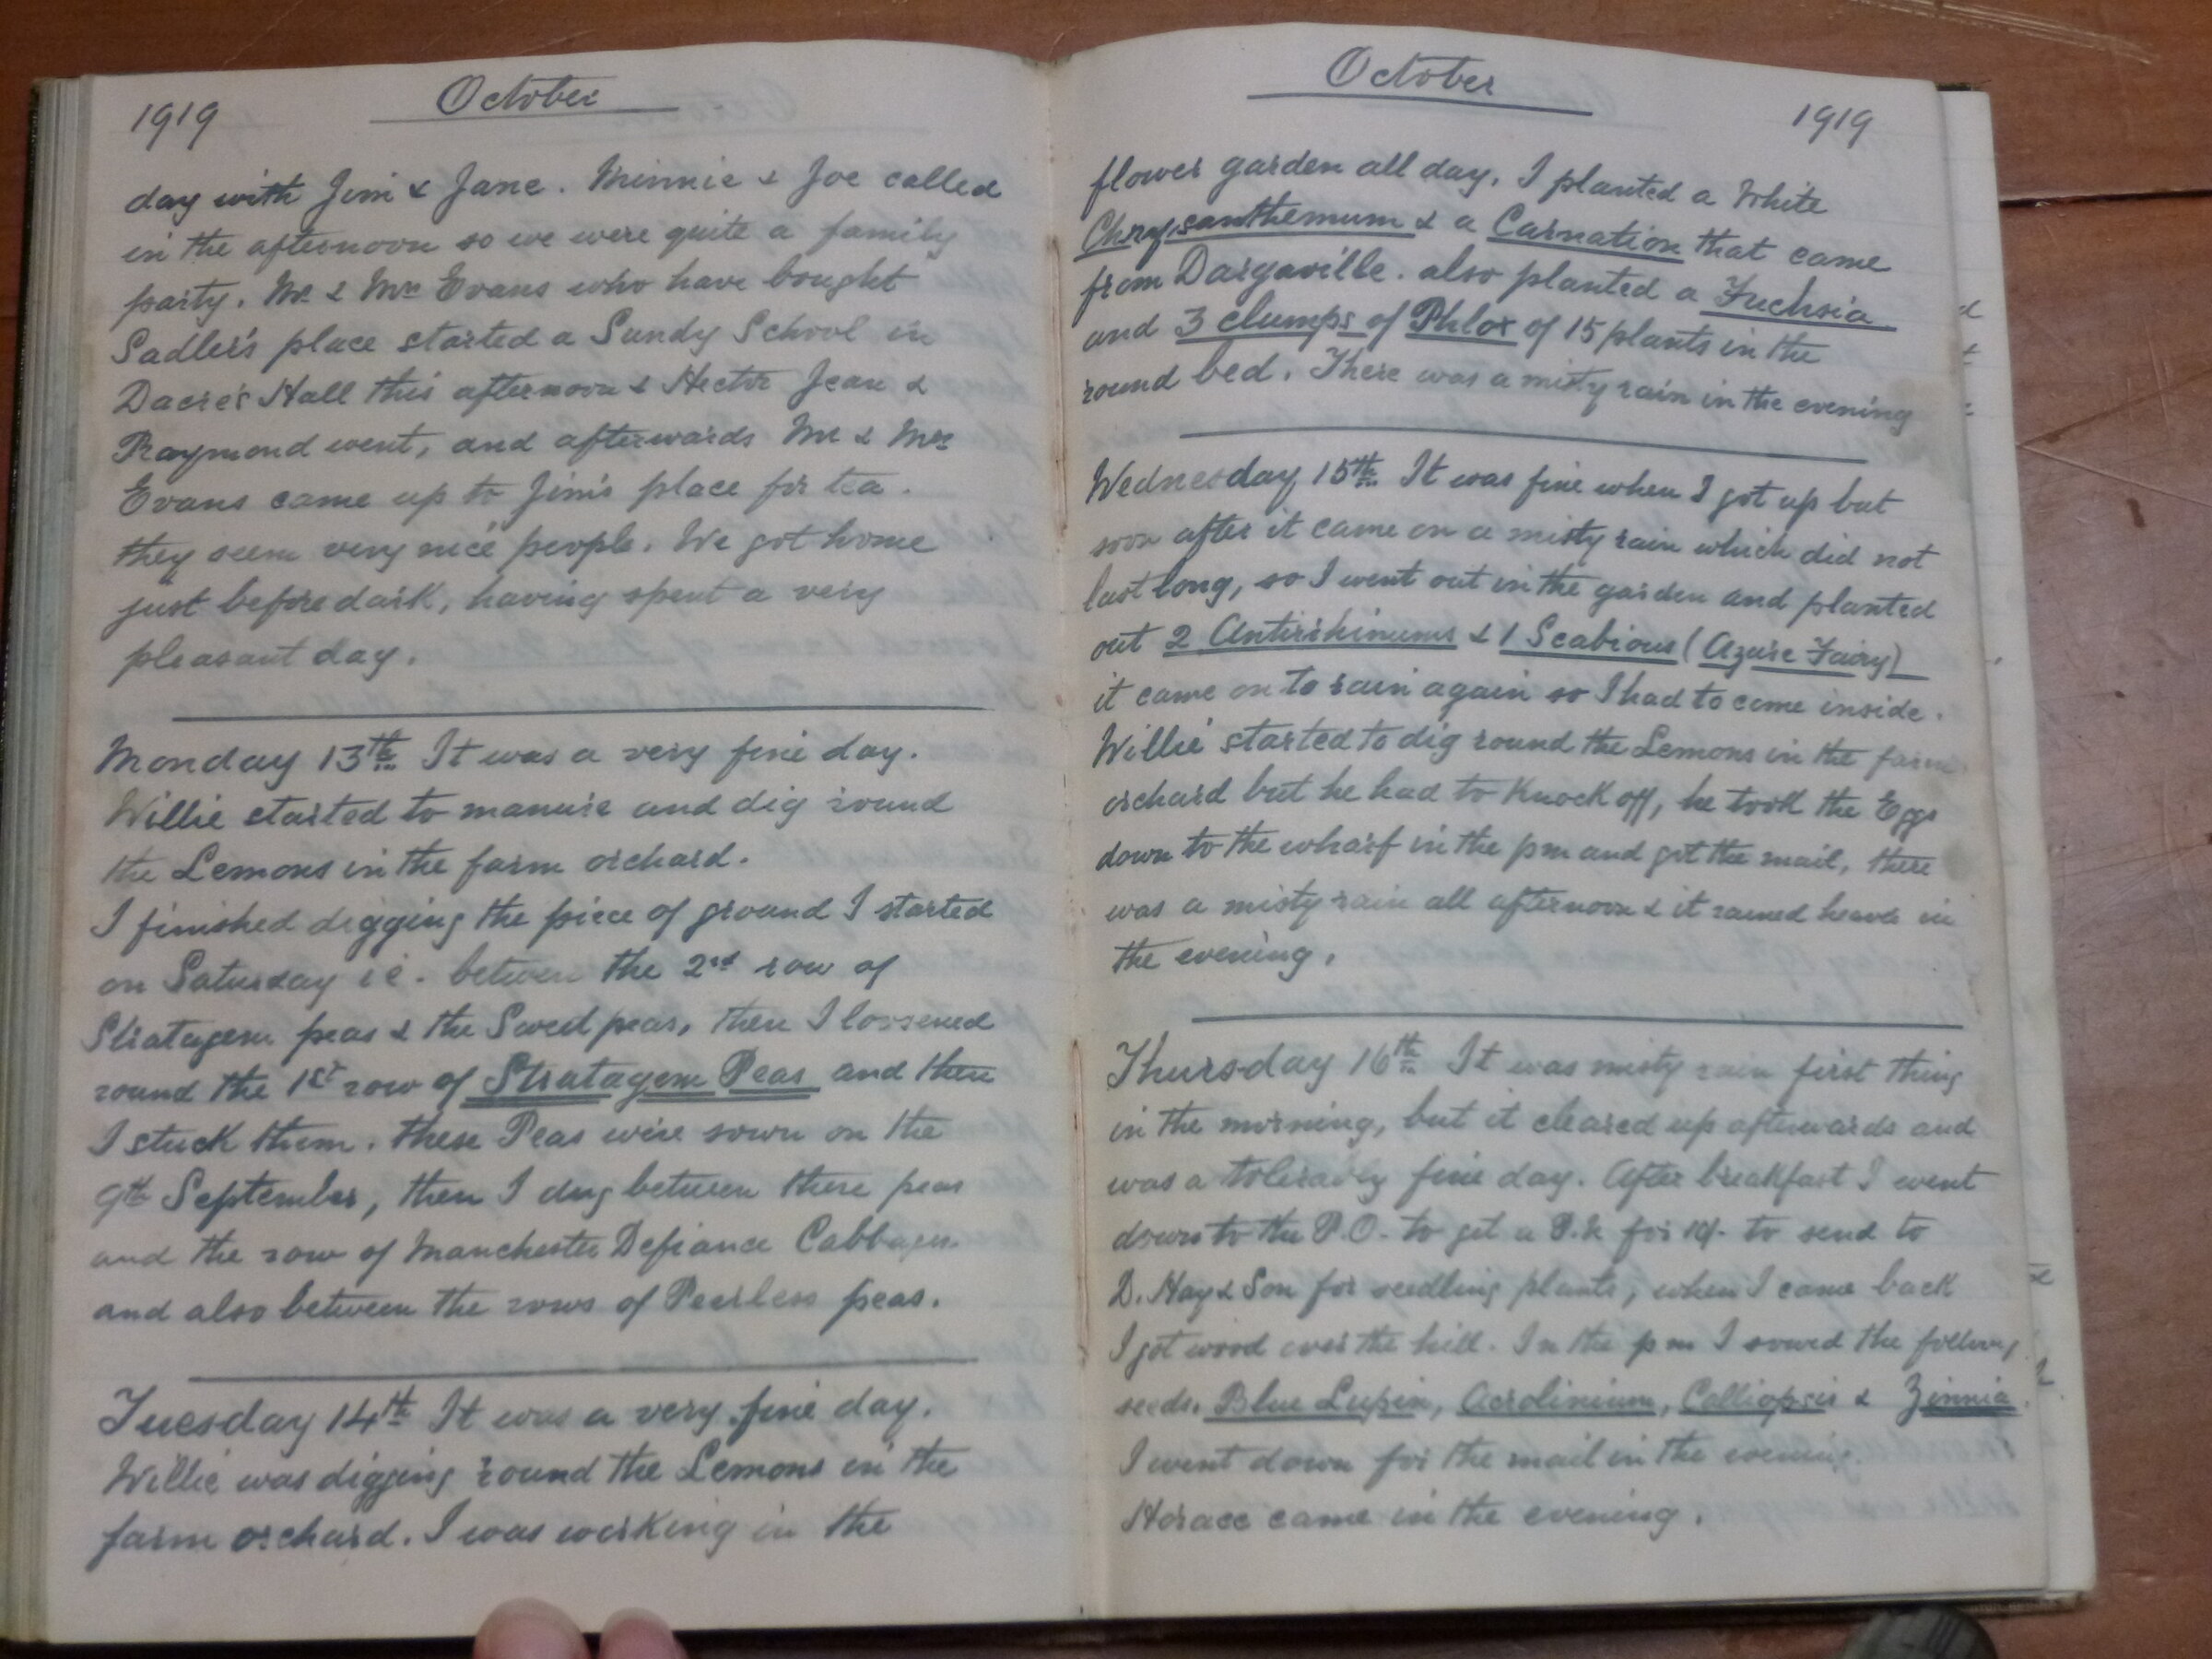 October
1919
day with Jim & Jane. Minnie & Joe called
in the afternoon so we were quite a family
party. Mr. & Mrs Evans who have bought
Sadler's place started a Sundy School in
Dacre's Hall this afternoon & Hector Jean &
Raymond went, and afterwards Mr & Mrs
Evans came up to Jim's place for tea.
they seem very nice people. We got home
just before dark, having spent a very
pleasant day.
Monday 13th It was a very fine day.
Willie started to manure and dig round
the Lemons in the farm orchard.
I finished digging the piece of ground I started
on Saturday ie. between the 2nd row of
Stratagem peas & the Sweet peas, then I loosened
round the 1st row of Stratagem Peas and then
I stuck them. these Peas were sown on the
9th September, then I dug between these peas
and the row of Manchester Defiance Cabbages
and also between the rows of Peerless peas.
Tuesday 14th It was a very fine day.
Willie was digging round the Lemons in the
farm orchard. I was working in the
October
1919
flower garden all day. I planted a White
Chrysanthemum & a Carnation that came
from Dargaville. also planted a Fuchsia
and 3 clumps of Phlox of 15 plants in the
round bed. There was a misty rain in the evening
Wednesday 15th It was fine when I got up but
soon after it came on a misty rain which did not
last long, so I went out in the garden and planted
out 2 Antirrhinums & 1 Scabious (Azure Fairy)
it came on to rain again so I had to come inside.
Willie started to dig round the Lemons in the farm
orchard but he had to Knock off, he took the Eggs
down to the wharf in the pm and got the mail, there
was a misty rain all afternoon & it rained heavy in
the evening.
Thursday 16th It was misty rain first thing
in the morning, but it cleared up afterwards and
was a tolerably fine day. After breakfast I went
down to the P.O. to get a P.N for to send to
D. Hay & Son for seedling plants, when I came back
I got wood over the hill. In the pm I sowed the following
seeds. Blue Lupin, Acrolinium, Calliopsis & Zinnia
I went down for the mail in the evening.
Horace came in the evening.